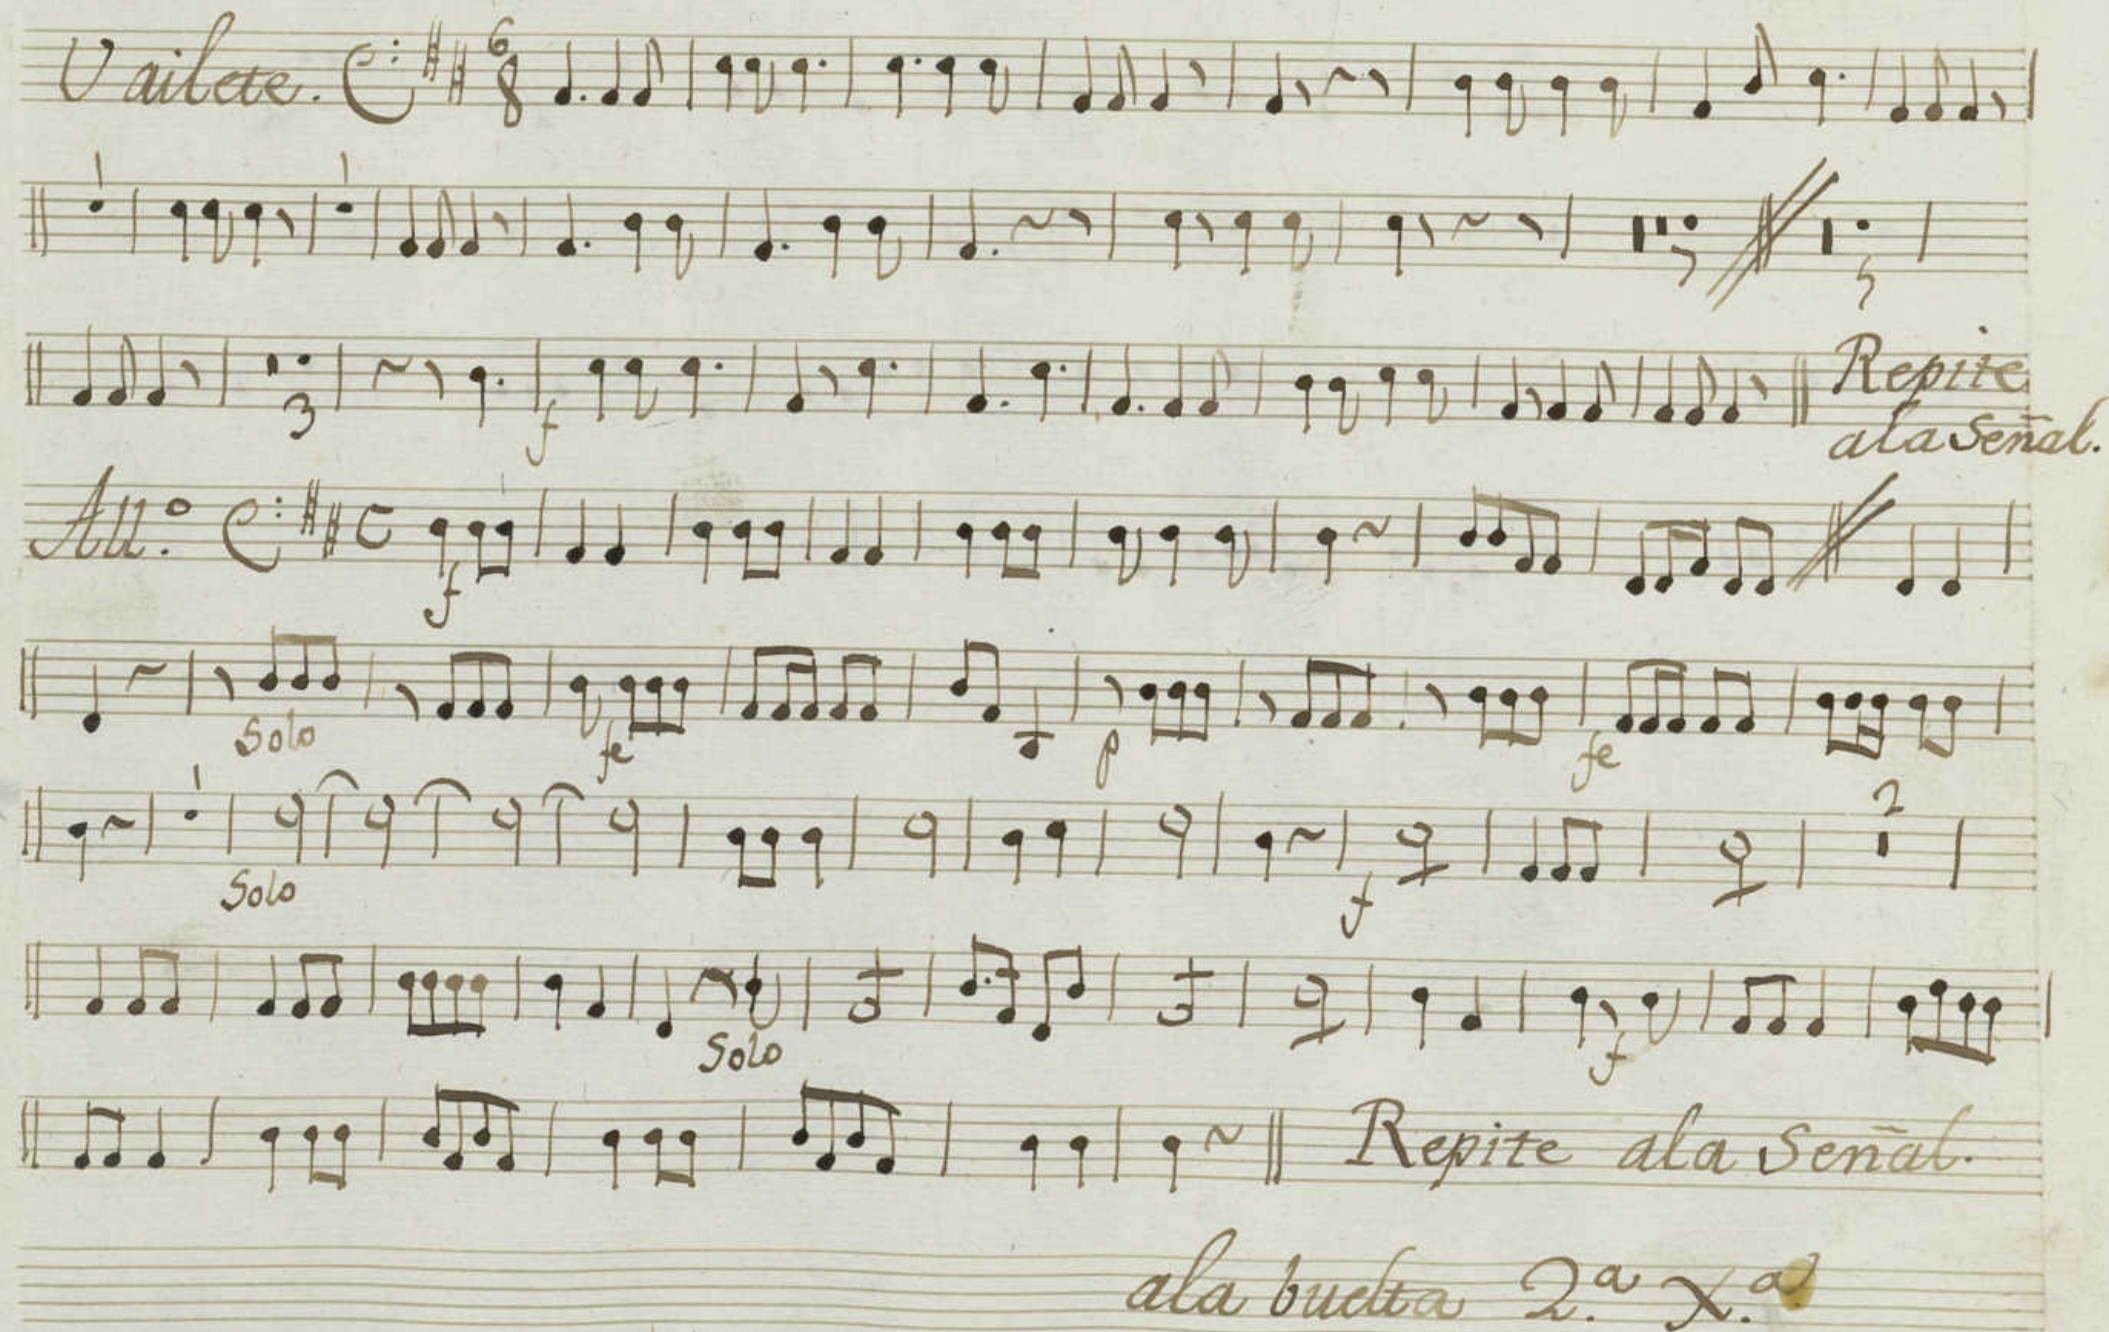 Vailete. 6 8
5 5
3 f Repite
ala Señal.
All.º C f
Solo fe p fe
Solo f 2
Solo f
Repite ala Señal.
ala buelta 2.ª X.ª